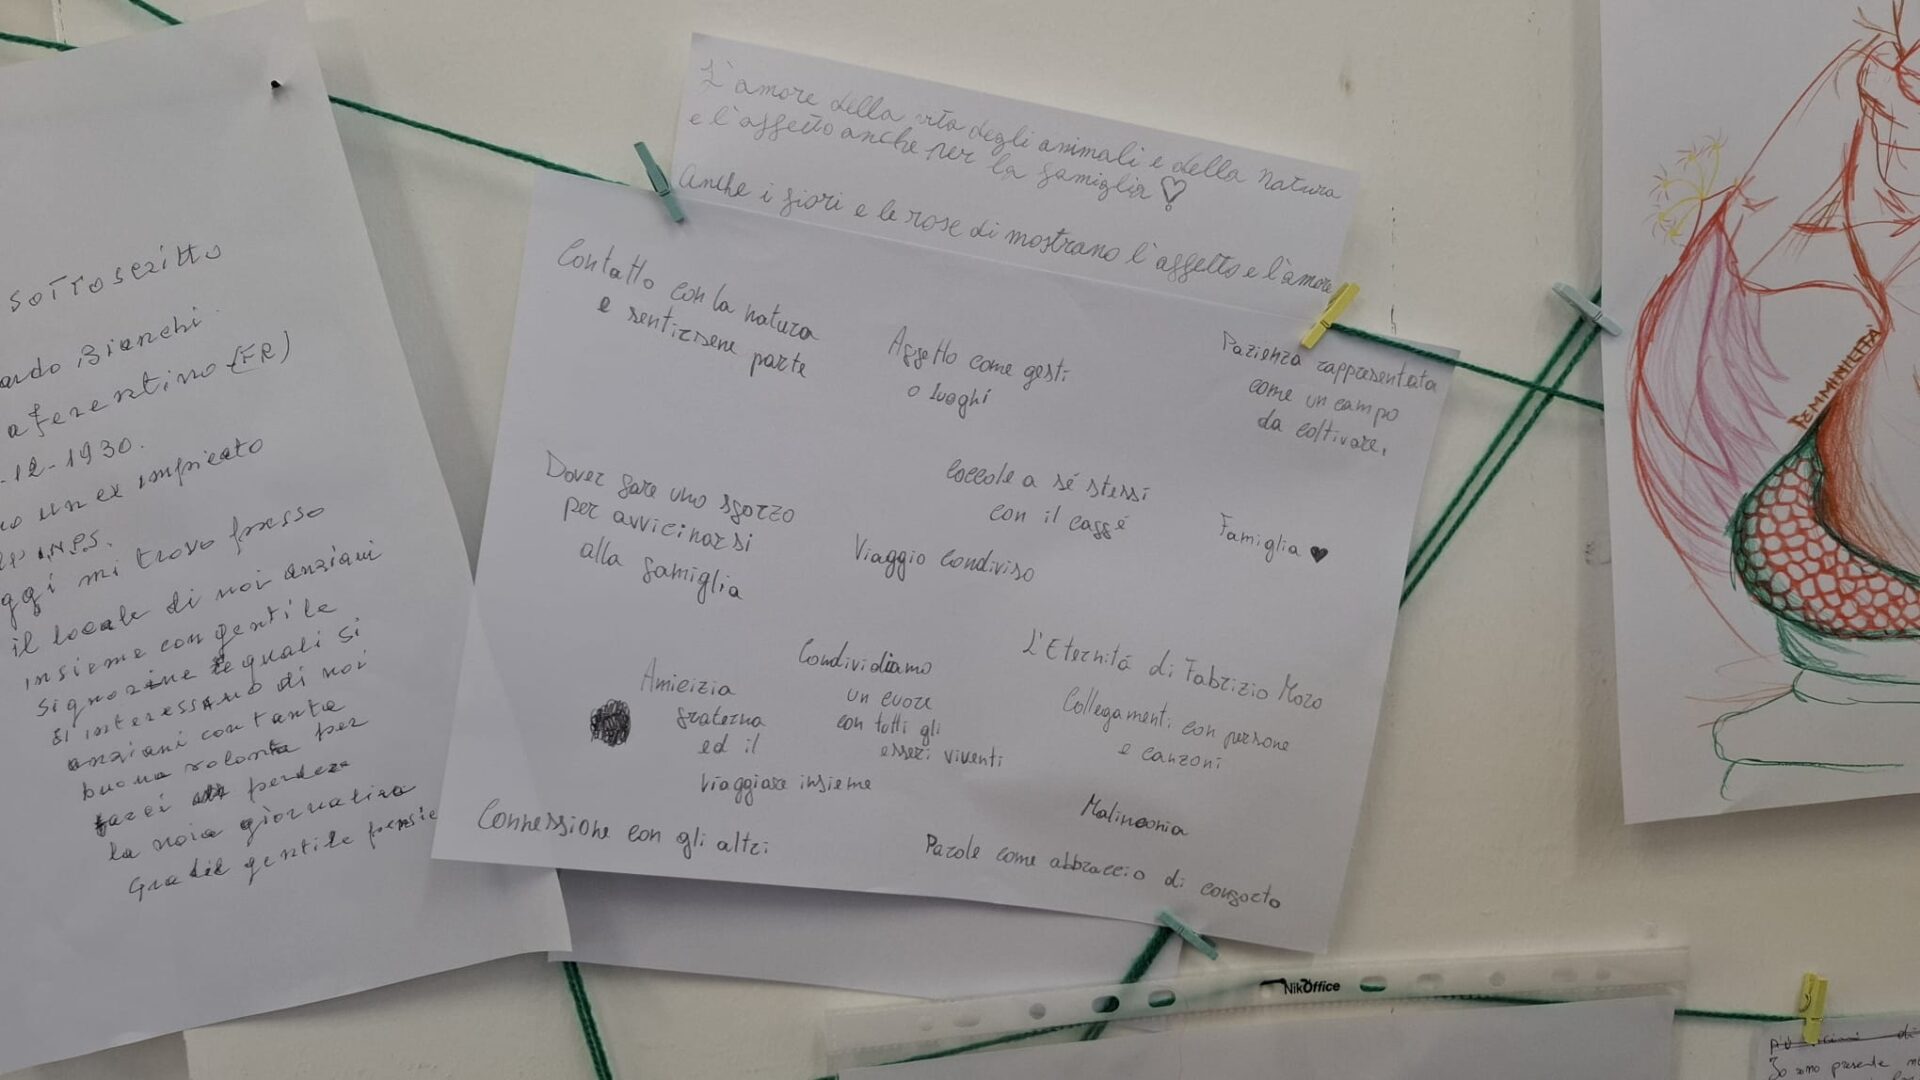 sottoscritto
Bianchi
a ferentino (FR)
-12-1930.
un ex impicato
I.N.P.S.
ggi mi trovo presso
il locale di noi anziani
insieme con gentile
signorine quali si
interessano di noi
anziani con tanta
buona volonta per
farci perdere
la noia giornatina
gentile pensie
L'amore della vita degli animali e della natura
e l'affetto anche per la famiglia ♡
Anche i fiori e le rose di mostrano l'affetto e l'amore
Contatto con la natura
e sentirsene parte
Affetto come gesti
o luoghi
Pazienza rappresentata
come un campo
da coltivare.
Dover fare uno sforzo
per avvicinarsi
alla famiglia
Coccole a sé stessi
con il caffé
Viaggio condiviso
Famiglia ♥
Amicizia
fraterna
ed il
viaggiare insieme
Condividiamo
un cuore
con tutti gli
esseri viventi
L'Eternitá di Fabrizio Moro
Collegamenti con persone
e canzoni
Malinconia
Connessione con gli altri
Parole come abbraccio di conforto
FEMMINILITÀ
NikOffice
Io sono presente